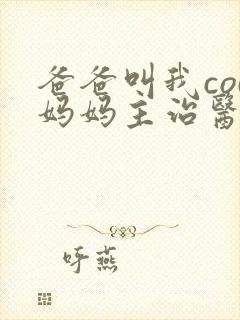 爸爸叫我co
妈妈主治醫
呼燕